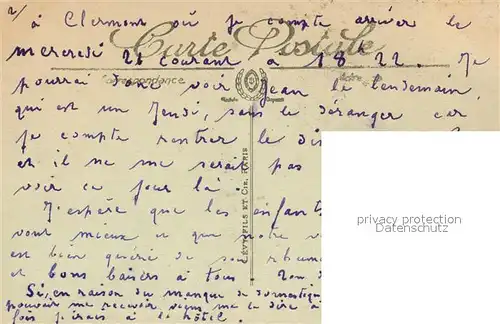 2/ à Clermont où je compte arriver le
Carte Postale
mercredi 21 courant à 18h22. Je
Correspondance
pourrai donc voir Jean le lendemain,
qui est un Jeudi, sans le déranger car
je compte rentrer le
et il ne me serait pas
voir ce jour là.
J'espère que les enfants
vont mieux et que notre
est bien guéri de son rhume
et bons baisers à tous
Si, en raison du manque de domestique
pouvais me recevoir me le dire à
fois j'irais à l'hôtel.
LÉVY FILS ET CIE, PARIS
privacy protection
Datenschutz